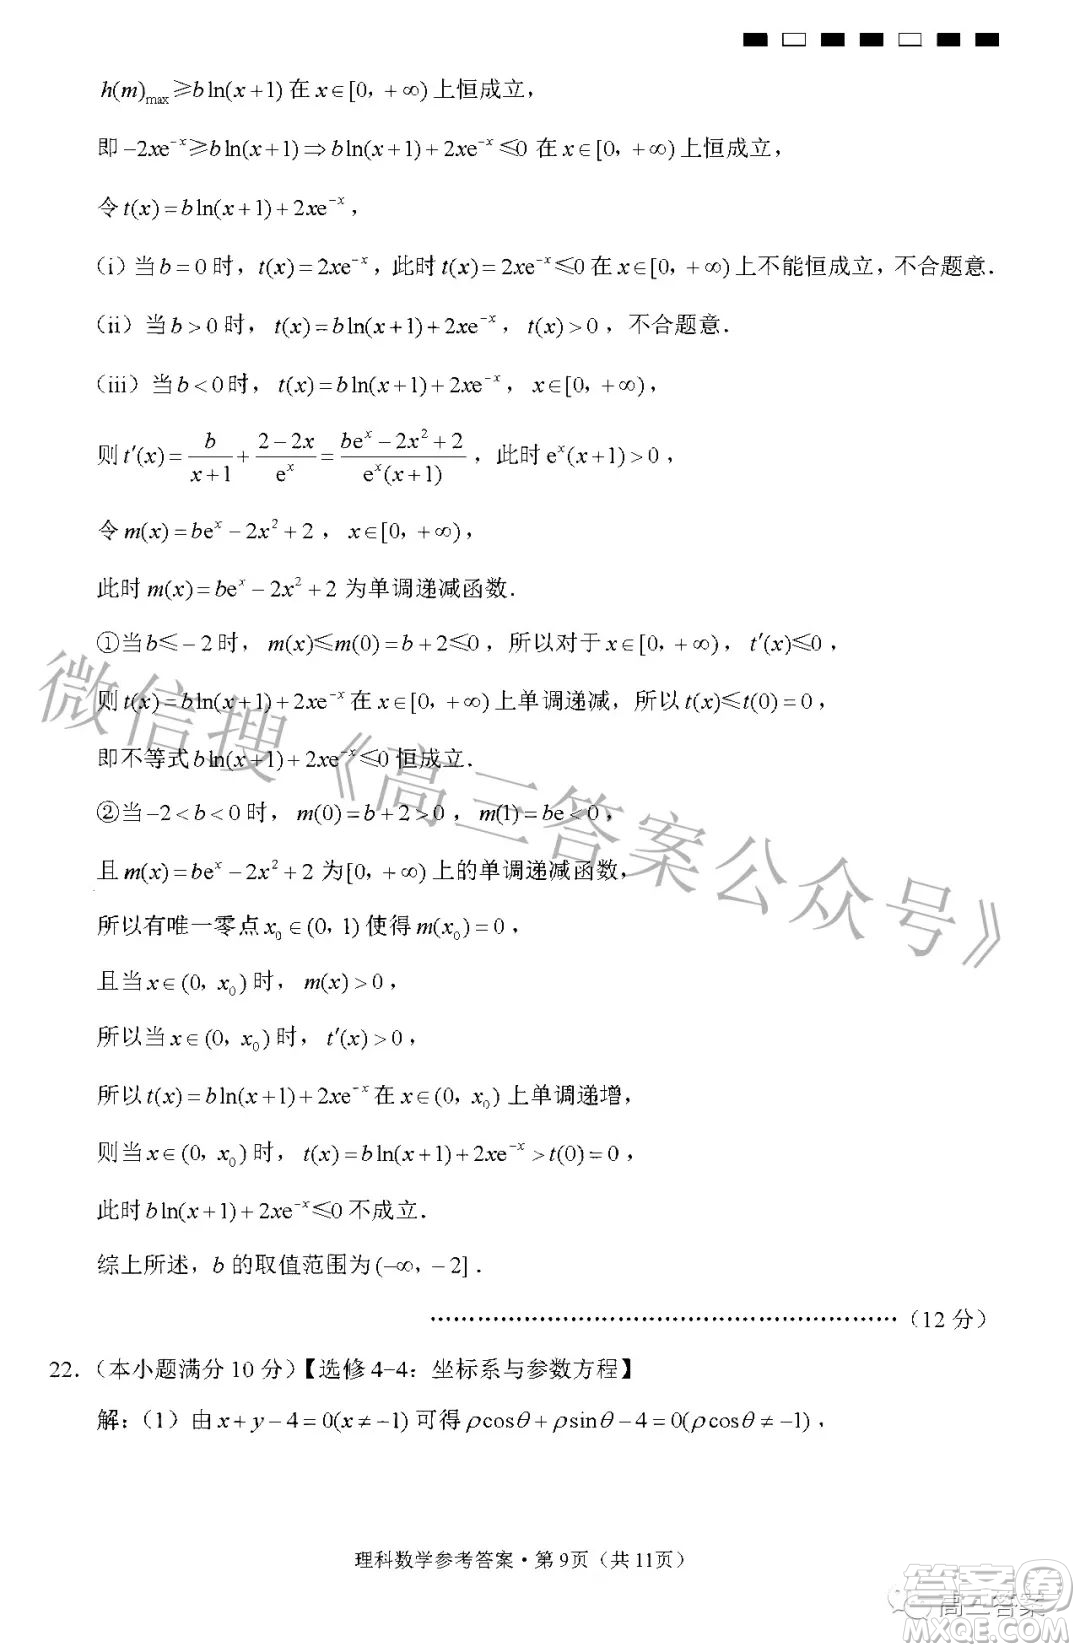 h(m)max≥bln(x+1) 在 x∈[0, +∞) 上恒成立,
即 −2xe⁻ˣ≥bln(x+1)⇒bln(x+1)+2xe⁻ˣ≤0 在 x∈[0, +∞) 上恒成立,
令 t(x)=bln(x+1)+2xe⁻ˣ,
(i) 当 b=0 时, t(x)=2xe⁻ˣ, 此时 t(x)=2xe⁻ˣ≤0 在 x∈[0, +∞) 上不能恒成立, 不合题意.
(ii) 当 b>0 时, t(x)=bln(x+1)+2xe⁻ˣ, t(x)>0, 不合题意.
(iii) 当 b<0 时, t(x)=bln(x+1)+2xe⁻ˣ, x∈[0, +∞),
则 t′(x)=b/(x+1)+(2−2x)/eˣ=(beˣ−2x²+2)/(eˣ(x+1)), 此时 eˣ(x+1)>0,
令 m(x)=beˣ−2x²+2, x∈[0, +∞),
此时 m(x)=beˣ−2x²+2 为单调递减函数.
①当 b≤−2 时, m(x)≤m(0)=b+2≤0, 所以对于 x∈[0, +∞), t′(x)≤0,
则 t(x)=bln(x+1)+2xe⁻ˣ 在 x∈[0, +∞) 上单调递减, 所以 t(x)≤t(0)=0,
即不等式 bln(x+1)+2xe⁻ˣ≤0 恒成立.
②当 −2<b<0 时, m(0)=b+2>0, m(1)=be<0,
且 m(x)=beˣ−2x²+2 为 [0, +∞) 上的单调递减函数,
所以有唯一零点 x₀∈(0, 1) 使得 m(x₀)=0,
且当 x∈(0, x₀) 时, m(x)>0,
所以当 x∈(0, x₀) 时, t′(x)>0,
所以 t(x)=bln(x+1)+2xe⁻ˣ 在 x∈(0, x₀) 上单调递增,
则当 x∈(0, x₀) 时, t(x)=bln(x+1)+2xe⁻ˣ>t(0)=0,
此时 bln(x+1)+2xe⁻ˣ≤0 不成立.
综上所述, b 的取值范围为 (−∞, −2].
……………………………………………………(12 分)
22. (本小题满分 10 分)【选修 4−4: 坐标系与参数方程】
解: (1) 由 x+y−4=0(x≠−1) 可得 ρcosθ+ρsinθ−4=0(ρcosθ≠−1),
理科数学参考答案·第 9页 (共 11页)
微信搜《高三答案公众号》
答案圈
高三答案
MXQE.COM